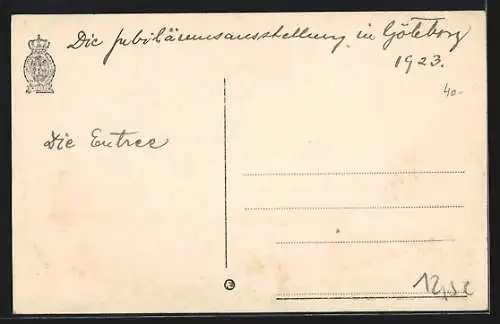 Die Jubiläumsausstellung in Göteborg
1923.
40-
Die Entree